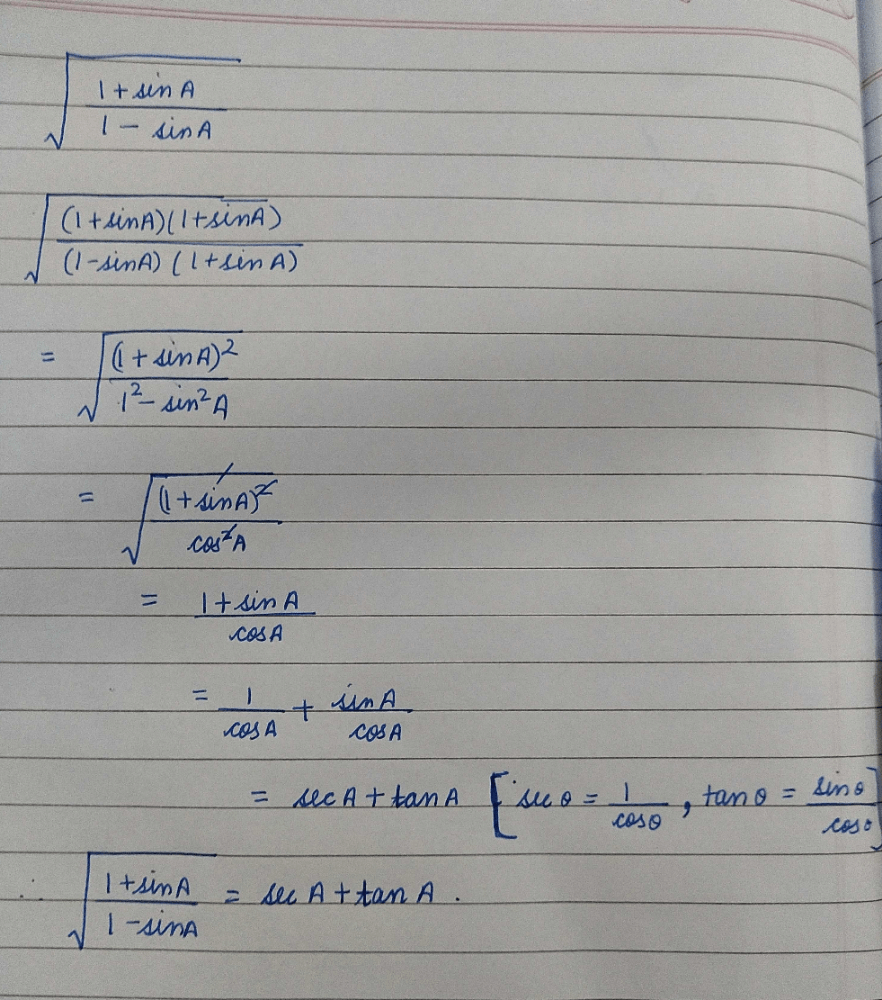 √((1 + sin A)/(1 - sin A))
√(((1 + sinA)(1 + sinA))/((1 - sinA)(1 + sinA)))
= √((1 + sinA)²/(1² - sin²A))
= √((1 + sinA)²/cos²A)
= (1 + sinA)/cosA
= 1/cosA + sinA/cosA
= secA + tanA [secθ = 1/cosθ, tanθ = sinθ/cosθ]
∴ √((1 + sinA)/(1 - sinA)) = sec A + tan A.